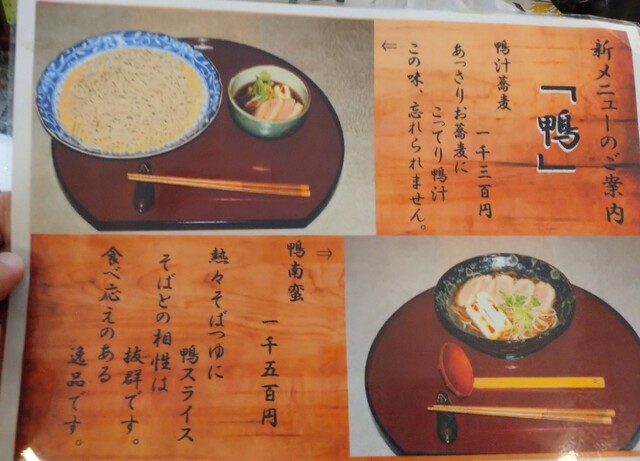 新メニューのご案内
「鴨」
鴨汁蕎麦
一千三百円
あっさりお蕎麦に
こってり鴨汁
この味、忘れられません。
⇐
⇒
鴨南蛮
一千五百円
熱々そばつゆに
鴨スライス
そばとの相性は
抜群です。
食べ応えのある
逸品です。